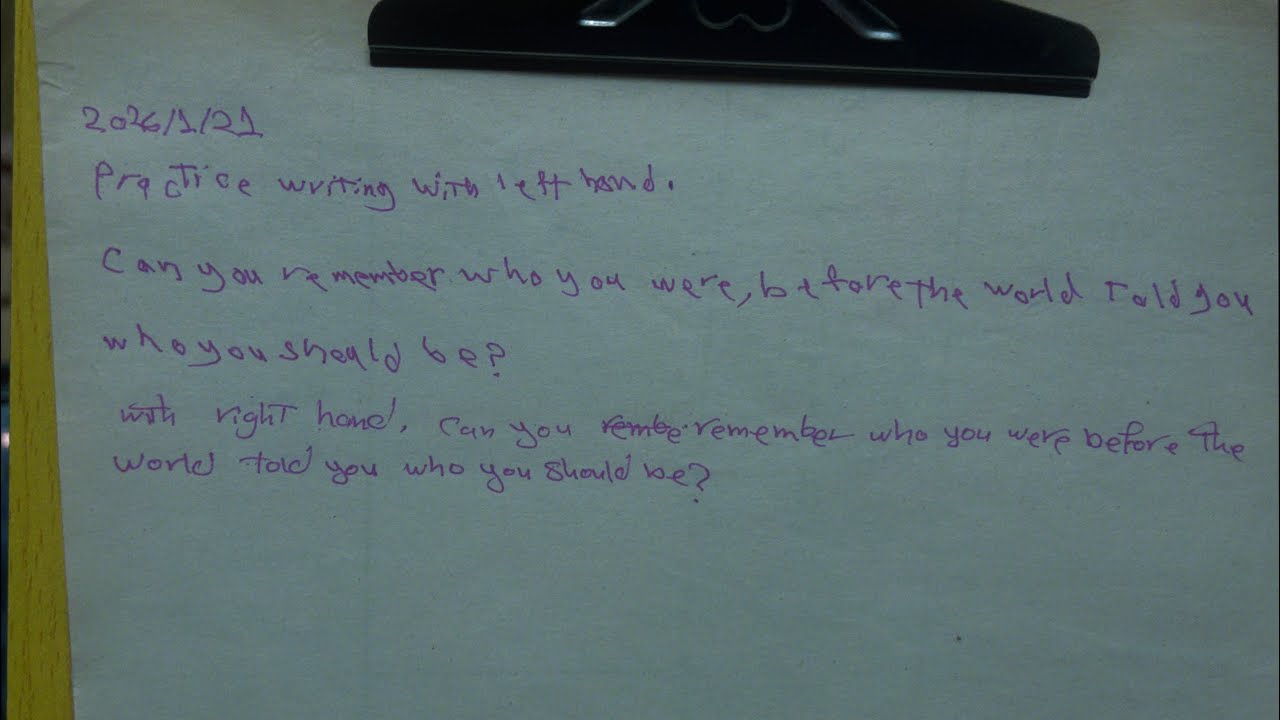 2026/1/21
Practice writing with left hand.
Can you remember who you were, before the world Told you
who you should be?
with right hand. Can you rembe remember who you were before the
world told you who you should be?